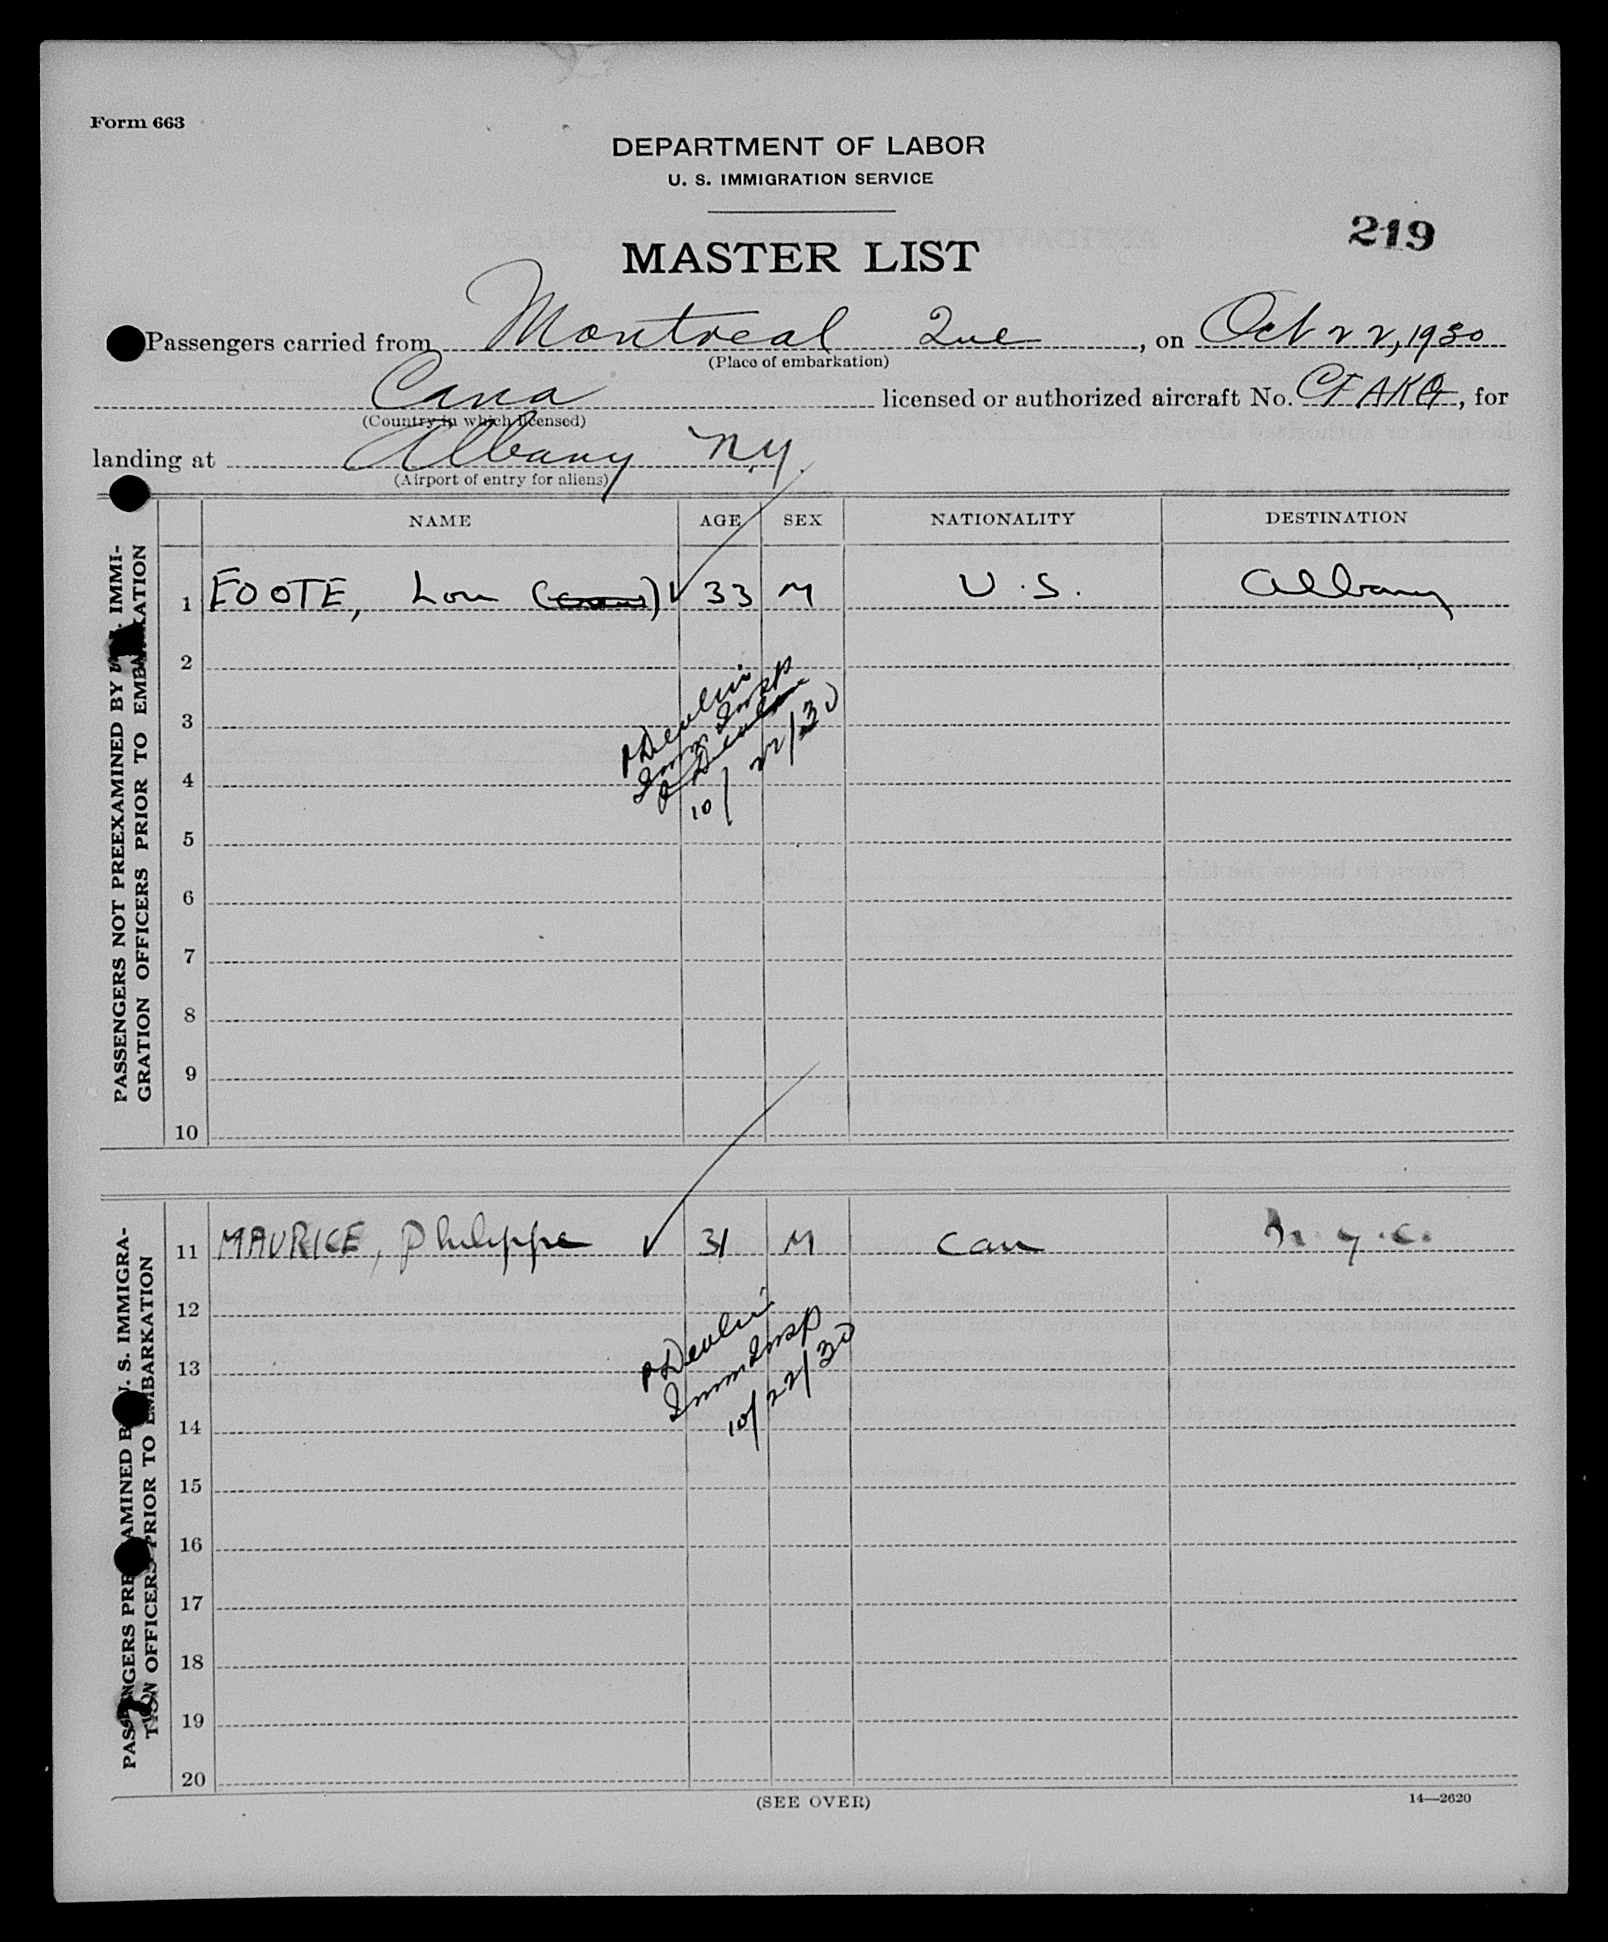 Form 663
DEPARTMENT OF LABOR
U. S. IMMIGRATION SERVICE
219
MASTER LIST
Passengers carried from Montreal Que, on Oct 22, 1930
(Place of embarkation)
Cana licensed or authorized aircraft No. CFAKO, for
(Country in which licensed)
landing at Albany N.Y.
(Airport of entry for aliens)
NAME AGE SEX NATIONALITY DESTINATION
PASSENGERS NOT PREEXAMINED BY IMMI-
GRATION OFFICERS PRIOR TO EMBARKATION
1 FOOTE, Lou () 33 M U.S. Albany
2
3
4
5
6
7
8
9
10
P Devlin
Imm Insp
P Devlin
10/22/30
PASSENGERS PREEXAMINED BY U. S. IMMIGRA-
TION OFFICERS PRIOR TO EMBARKATION
11 MAURICE, Philippe 31 M Can N.Y.C.
12
13
14
15
16
17
18
19
20
P Devlin
Imm Insp
10/22/30
(SEE OVER)
14—2620